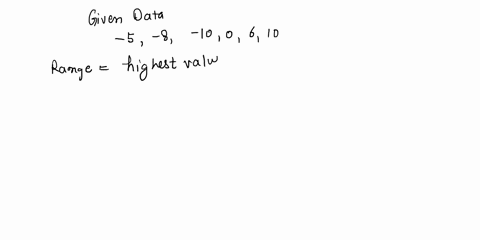 Given Data
-5, -8, -10, 0, 6, 10
Range = highest valu